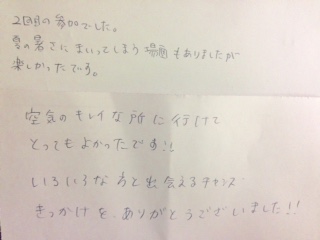 2回目の参加でした。
夏の暑さにまいってしまう場面もありましたが
楽しかったです。
空気のキレイな所に行けて
とってもよかったです!!
いろいろな方と出会えるチャンス
きっかけを、ありがとうございました!!